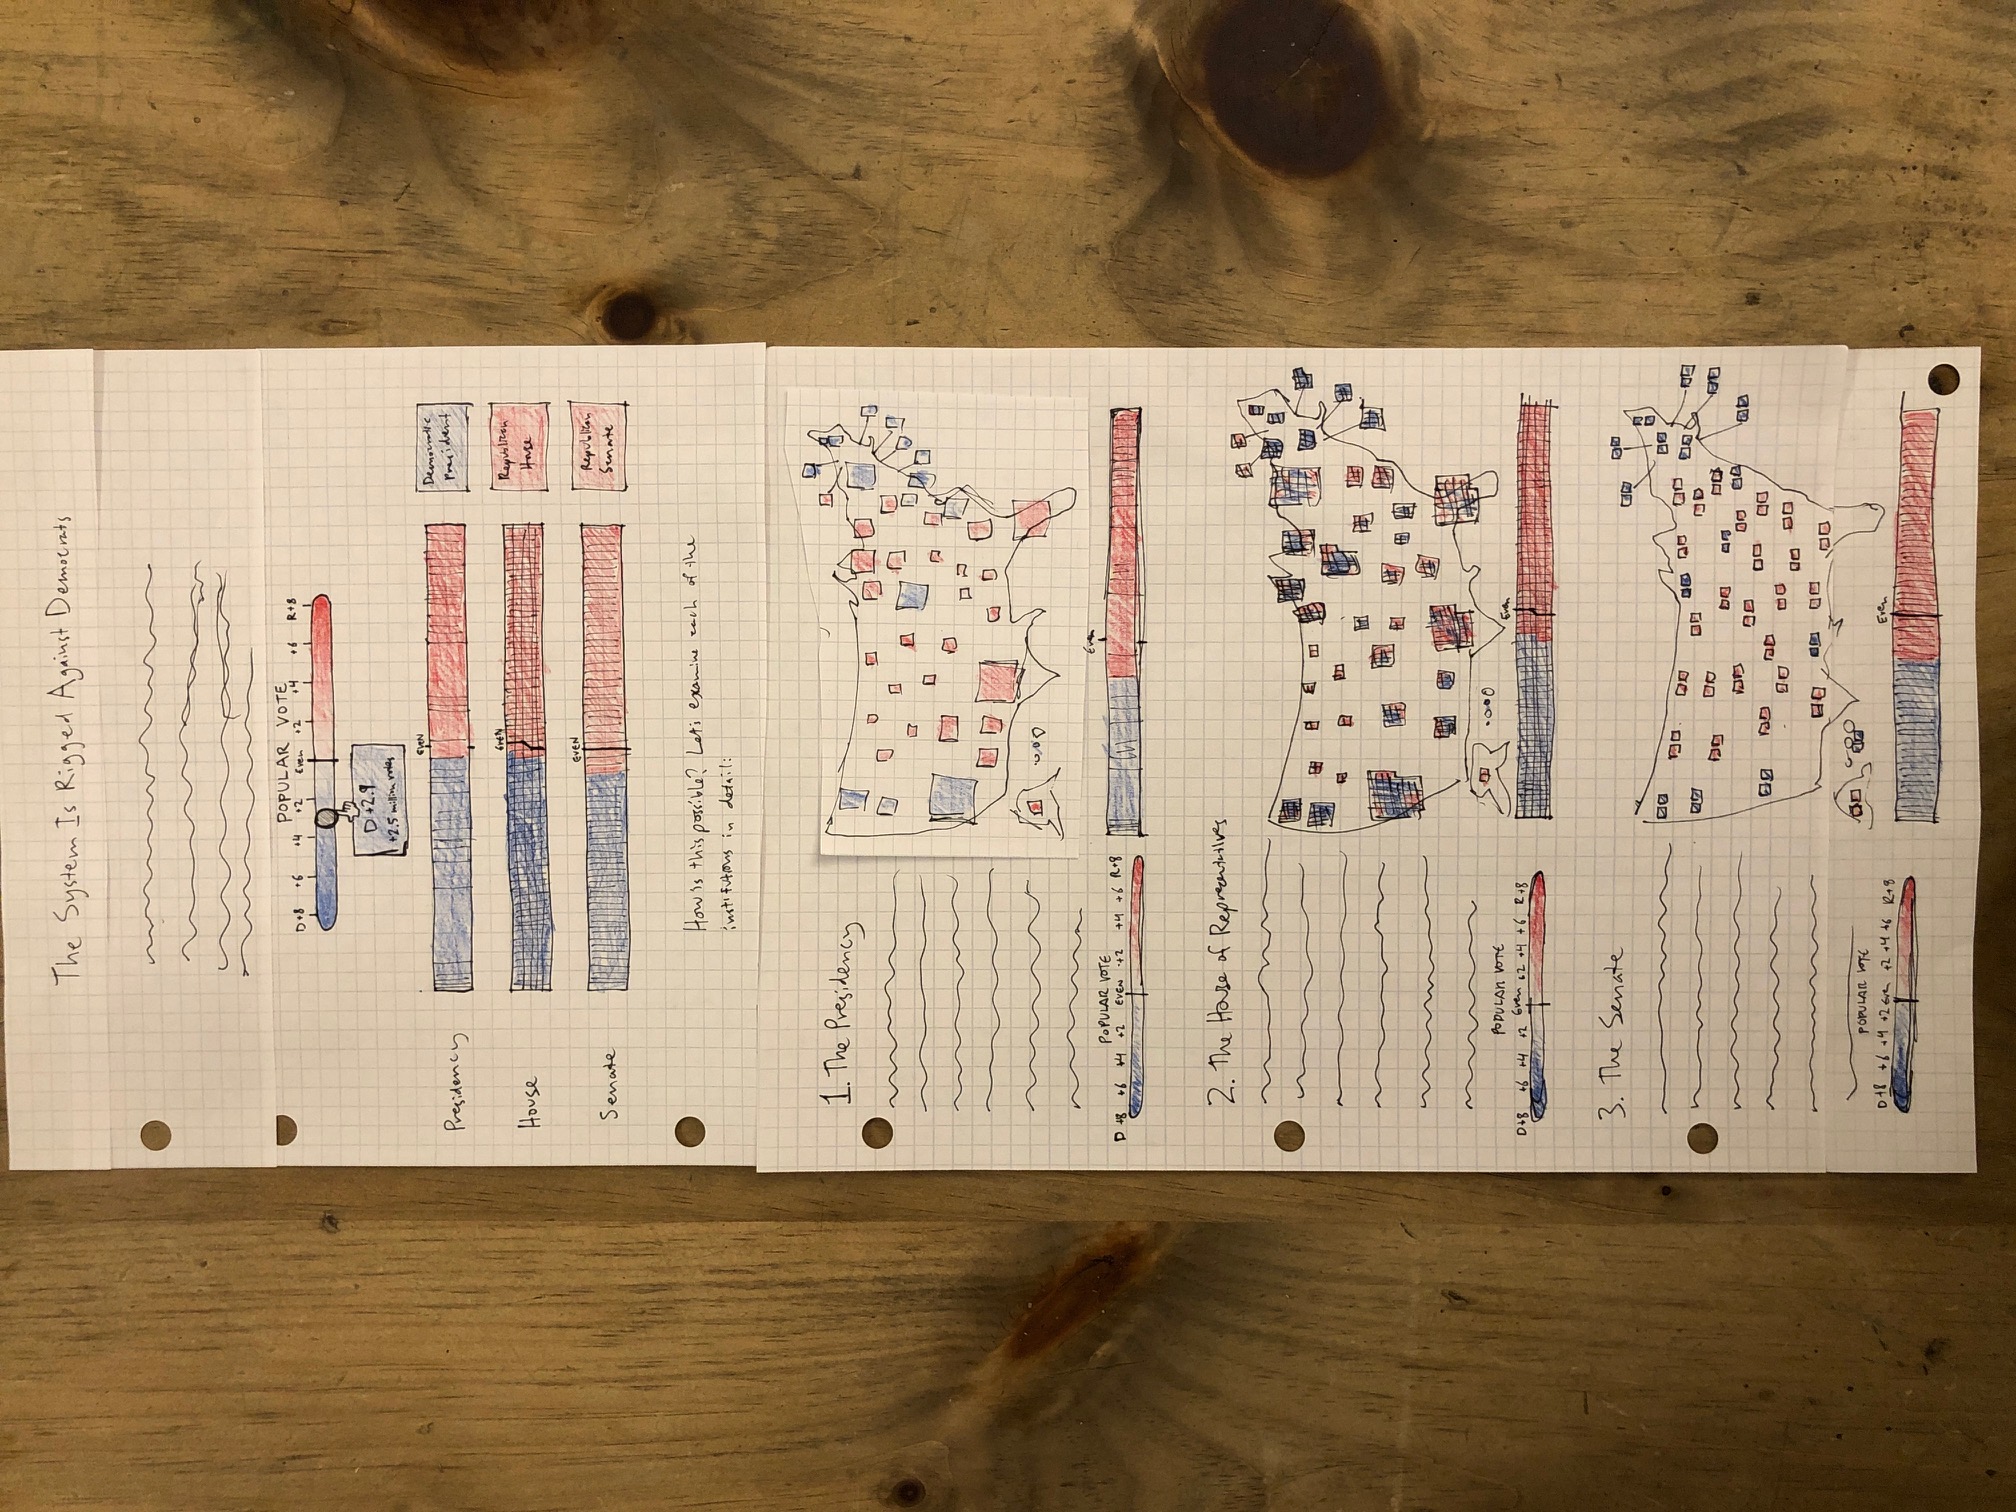 The System Is Rigged Against Democrats
POPULAR VOTE
D+8 +6 +4 +2 Even +2 +4 +6 R+8
D +2.9
+2.5 million votes
EVEN
Presidency
Democratic
President
EVEN
House
Republican
House
EVEN
Senate
Republican
Senate
How is this possible? Let's examine each of the
institutions in detail:
1. The Presidency
Even
POPULAR VOTE
D +8 +6 +4 +2 EVEN +2 +4 +6 R+8
2. The House of Representatives
POPULAR VOTE
D+8 +6 +4 +2 Even +2 +4 +6 R+8
Even
3. The Senate
POPULAR VOTE
D+8 +6 +4 +2 Even +2 +4 +6 R+8
Even